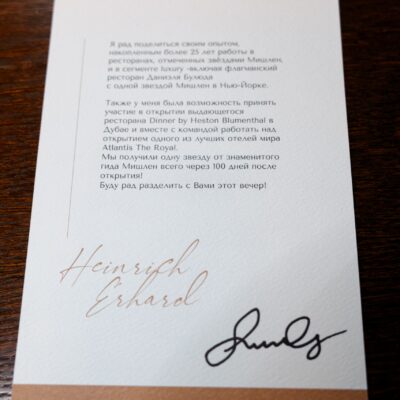 Я рад поделиться своим опытом,
накопленным более 25 лет работы в
ресторанах, отмеченных звёздами Мишлен,
и в сегменте luxury -включая флагманский
ресторан Даниэля Булюда
с одной звездой Мишлен в Нью-Йорке.
Также у меня была возможность принять
участие в открытии выдающегося
ресторана Dinner by Heston Blumenthal в
Дубае и вместе с командой работать над
открытием одного из лучших отелей мира
Atlantis The Royal.
Мы получили одну звезду от знаменитого
гида Мишлен всего через 100 дней после
открытия!
Буду рад разделить с Вами этот вечер!
Heinrich
Erhard